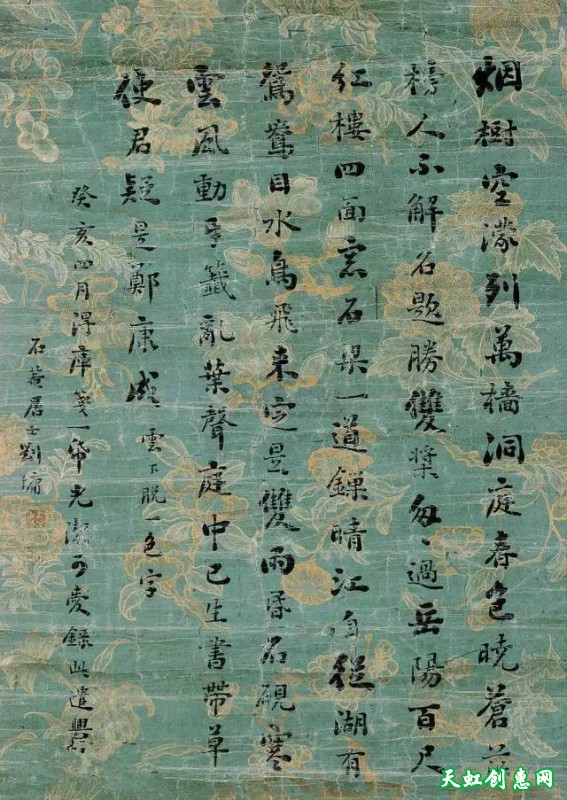 烟樹空濛列萬檣洞庭春色曉蒼茫
榜人不解名題勝雙槳匆〻過岳陽百尺
紅樓四面窓石梁一道鏁晴江自從湖有
鴛鴦目水鳥飛来定是雙雨昏石硯寒
雲風動牙籤亂葉聲庭中已生書帶草
使君疑是鄭康成 雲下脫一色字
癸亥四月得庫箋一帋光潔可愛錄此遣興
石菴居士劉墉
天虹创惠网